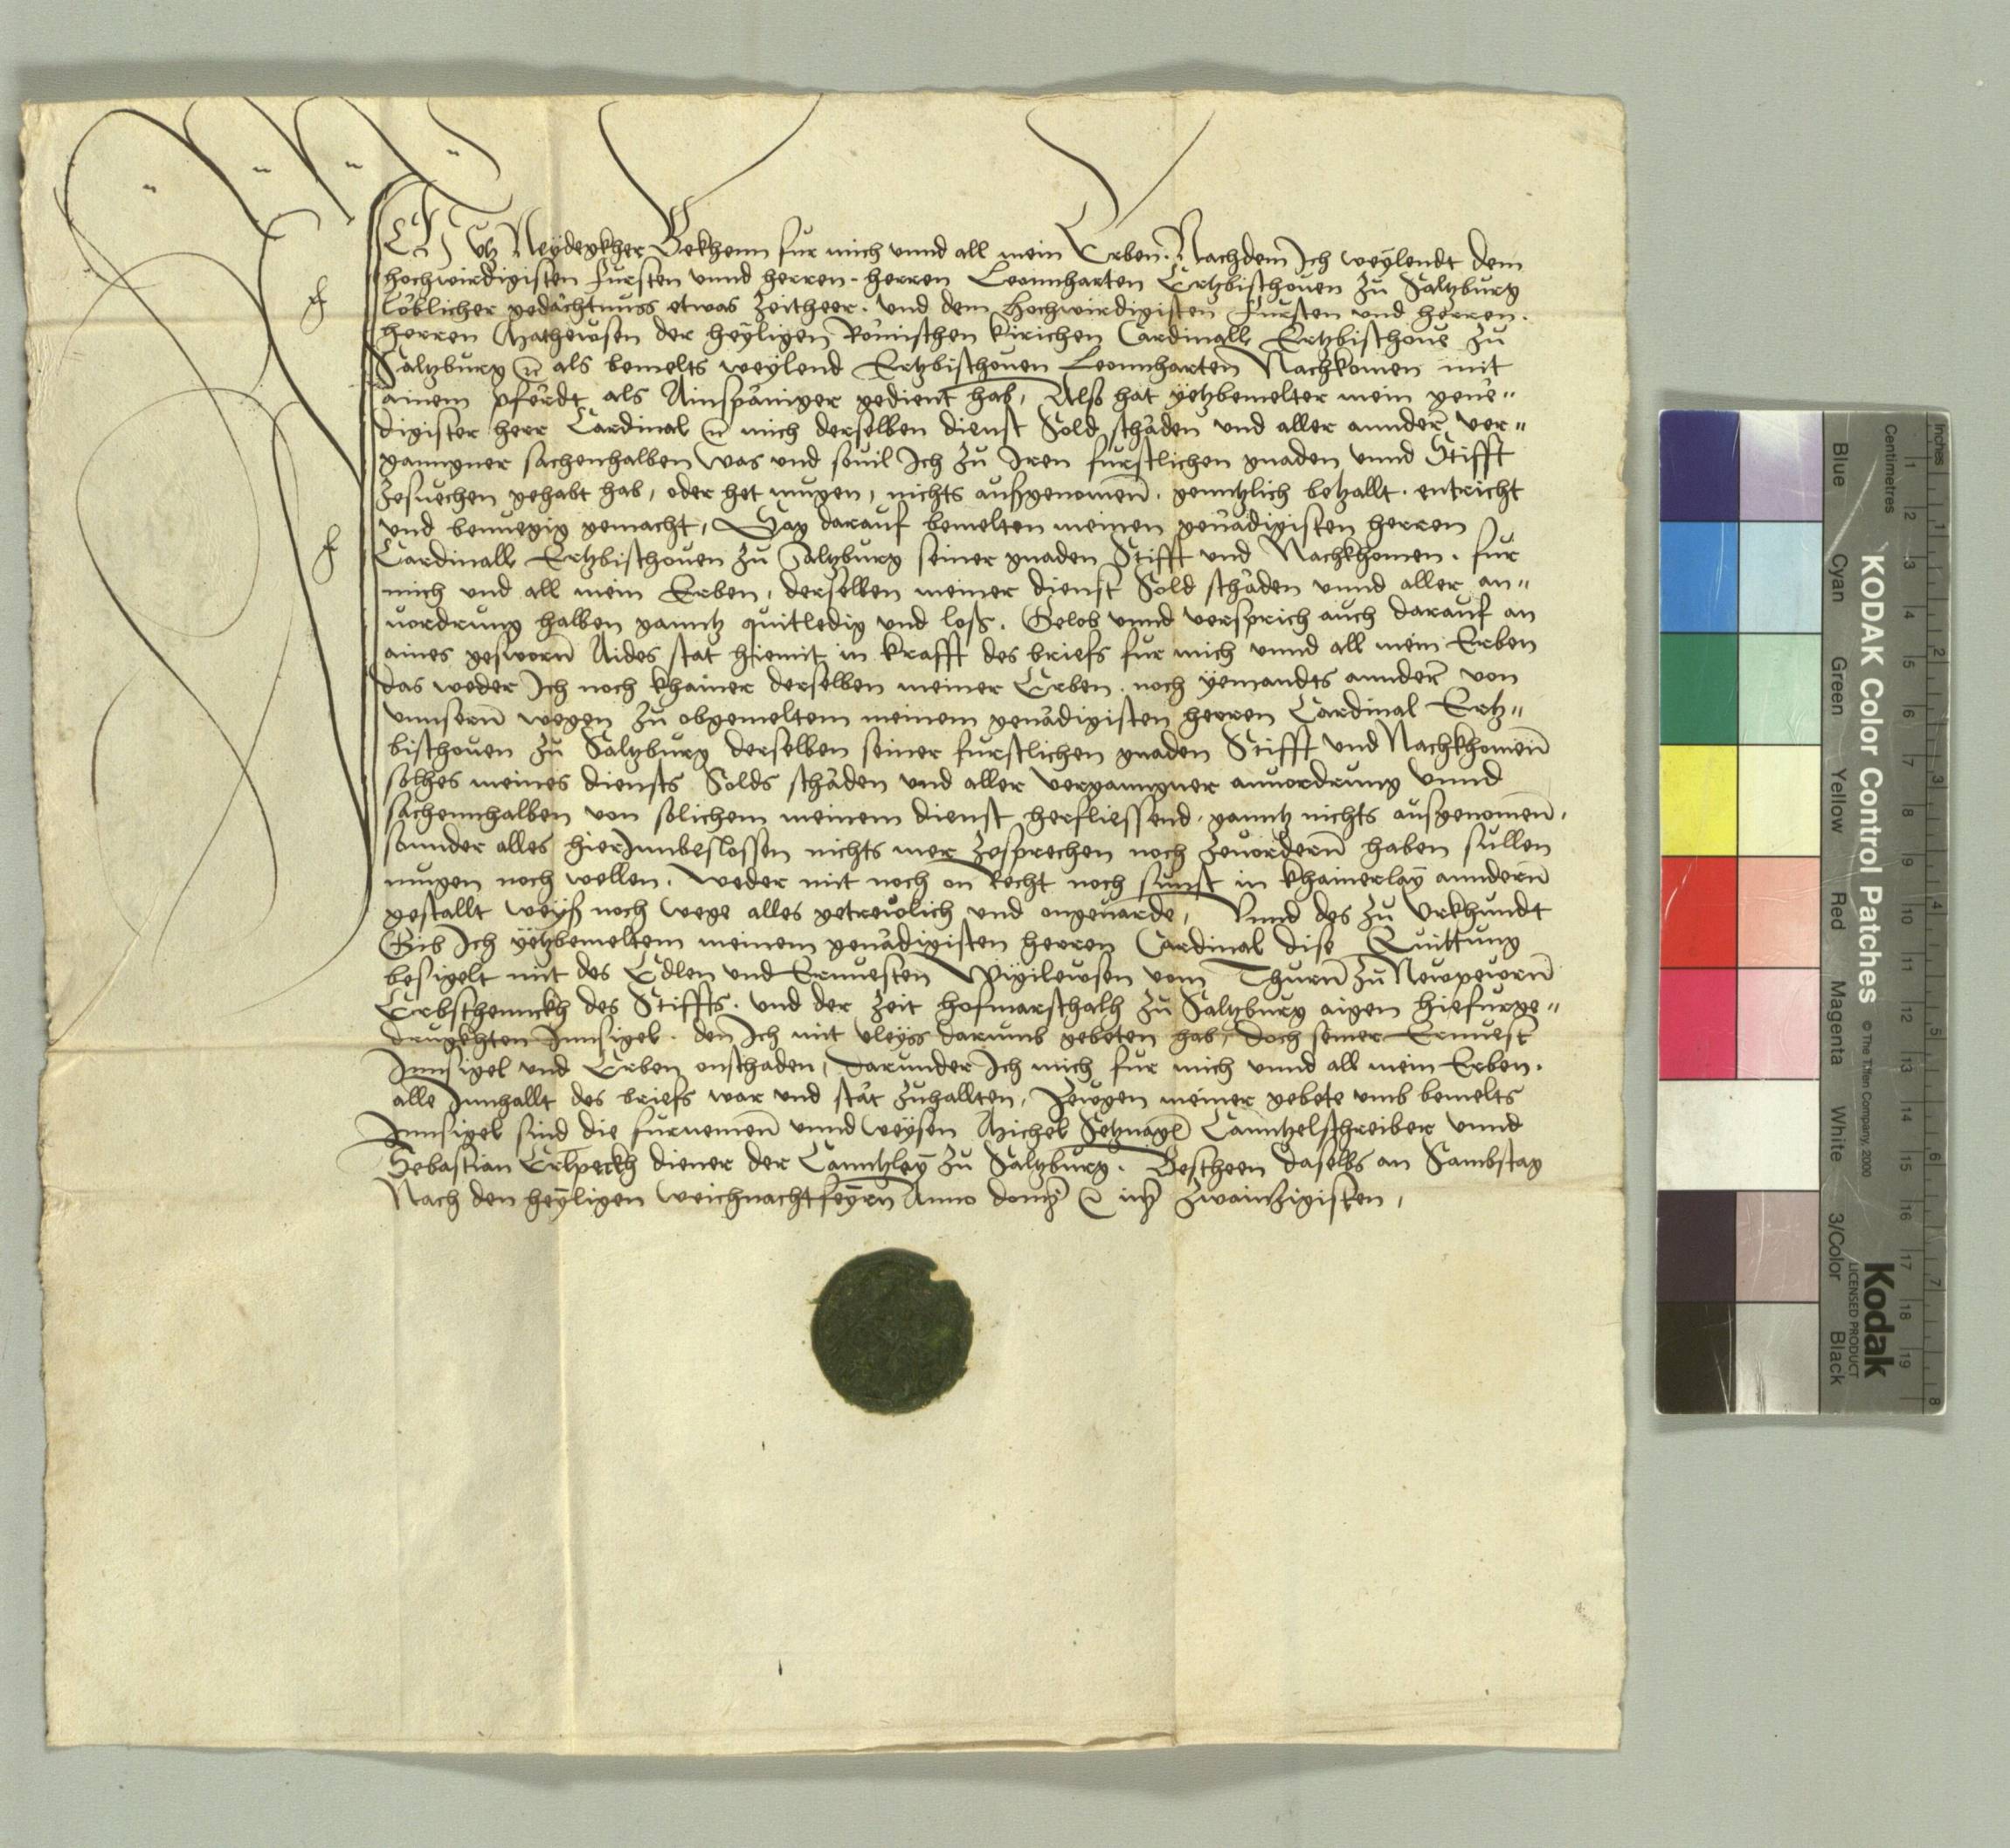 ICh Utz Neydegkher Bekhenn fur mich unnd all mein Erben. Nachdem Ich weylendt dem
hochwirdigisten fursten unnd herren. herren Leonnharten Ertzbischouen zu Saltzburg
löblicher gedächtnuss etwas zeitheer. und dem Hochwirdigisten Fursten und herren.
herren Matheusen der heyligen Römischen kirichen Cardinall Ertzbischoue zu
Saltzburg als bemelts weylend Ertzbischouen Leonnharten Nachkomen mit
ainem pferdt als Ainspäniger gedient hab, Also hat yetzbemelter mein gene"
digister herr Cardinal mich derselben dienst Sold schäden und aller annder ver"
ganngner sachenhalben was und souil Ich zu Iren furstlichen gnaden unnd Stifft
zesuechen gehabt hab, oder het mugen, nichts ausgenomen. genntzlich betzallt. entricht
und benuegig gemacht, Sag darauf bemelten meinen genädigisten herren
Cardinall Ertzbischouen zu Saltzburg seiner gnaden Stifft und Nachkhomen. fur
mich und all mein Erben, derselben meiner dienst Sold schäden unnd aller an"
uordrung halben ganntz quitledig und loss. Gelob unnd versprich auch darauf an
aines geswornn Aides stat hiemit in krafft des briefs fur mich unnd all mein Erben
das weder Ich noch khainer derselben meiner Erben. noch yemandts annder von
unnsern wegen zu obgemeltem meinem genädigisten herren Cardinal Ertz"
bischouen zu Saltzburg derselben seiner furstlichen gnaden Stifft und Nachkhomen
solhes meines diensts Solds schäden und aller verganngner anuordrung unnd
sachennhalben von solichem meinem dienst herfliessend. ganntz nichts ausgenomen.
sounder alles hierInnbeslossen nichts mer zesprechen noch zeuordern haben sullen
mugen noch wellen. weder mit noch on Recht noch sunst in khainerlay anndern
gestallt weys noch wege alles getreulich und ongeuärde, Unnd des zu Urkhundt
Gib Ich yetzbemeltem meinem genädigisten herren Cardinal dise Quittung
besigelt mit des Edlen und Ernuesten Vigileusen vom Thurn zu Newpewrn
Erbschennckh des Stiffts. und der zeit hofmarschalh zu Saltzburg aigen hiefurge"
drugkhten Innsigel. den Ich mit vleyss darumb gebeten hab, doch seiner Ernuest
Innsigel und Erben onschaden, Darunder Ich mich fur mich unnd all mein Erben.
alle Innhallt des briefs war und stät zuhallten, Zewgen meiner gebete umb bemelts
Innsigel sind die furnemen unnd weysen Michel Setznagl Canntzelschreiber unnd
Sebastian Erlpeckh diener der Canntzley zu Saltzburg. Bescheen daselbs an Sambstag
Nach den heyligen weichnachtfeyrn Anno domi zwaintzigisten,
KODAK Color Control Patches © The Tiffen Company, 2000
Kodak
LICENSED PRODUCT
Blue Cyan Green Yellow Red Magenta White 3/Color Black
Inches 1 2 3 4 5 6 7 8
Centimetres 1 2 3 4 5 6 7 8 9 10 11 12 13 14 15 16 17 18 19